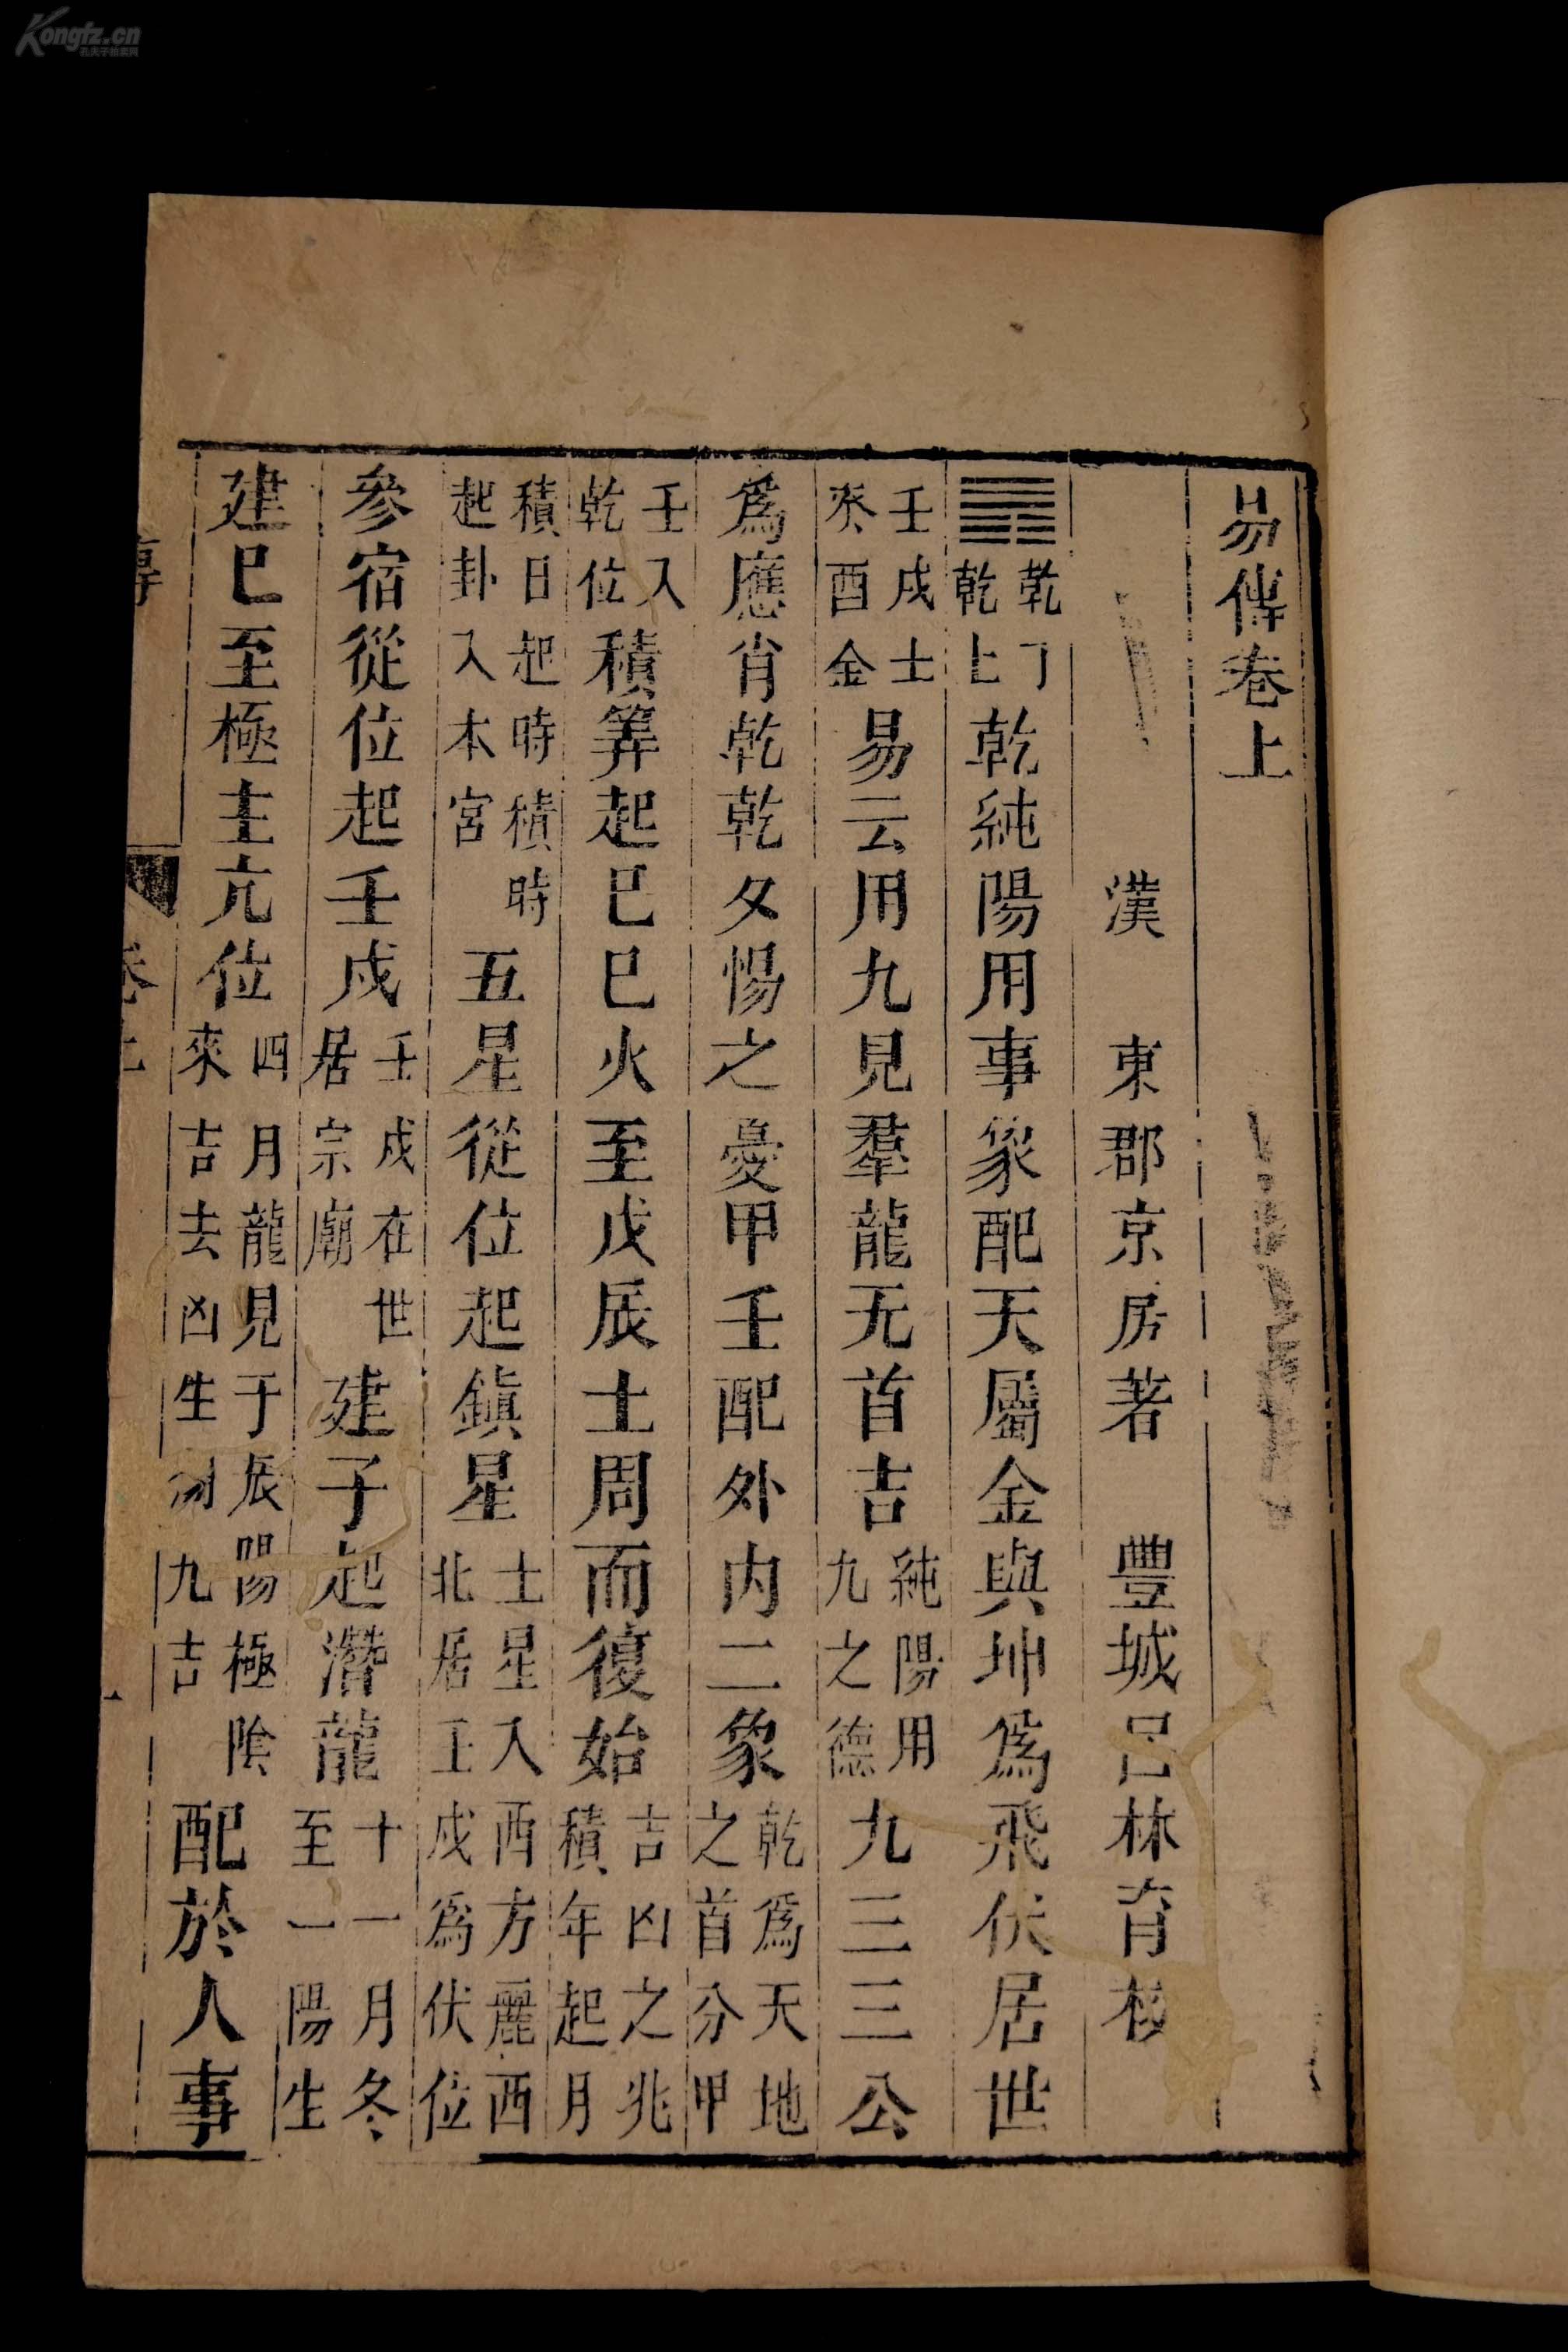 Kongfz.cn
孔夫子旧书网
易傳卷上
漢 東郡京房著 豐城呂林育校
乾下乾上 乾純陽用事象配天屬金與坤爲飛伏居世
壬戌土癸酉金 易云用九見羣龍无首吉 純陽用九之德 九三三公
爲應肖乾乾夕惕之憂甲壬配外内二象 乾爲天地之首分甲
壬入乾位 積筭起巳巳火至戊辰土周而復始 吉凶之兆積年起月
積日起時積時起卦入本宮 五星從位起鎮星 土星入西方麗西北居壬戌爲伏位
參宿從位起壬戌 壬戌在世居宗廟 建子起潛龍 十一月冬至一陽生
建巳至極主亢位 四月龍見于辰陽極陰來吉去凶生 九吉 配於人事
傳
卷上